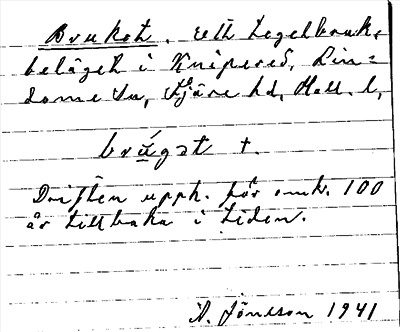 Bruket. Ett tegelbruk,
beläget i Knipered, Lin=
dome sn, Fjäre hd, Hall. l,
brúgət +.
Driften upph. för omkr. 100
år tillbaka i tiden.
A. Jönsson 1941